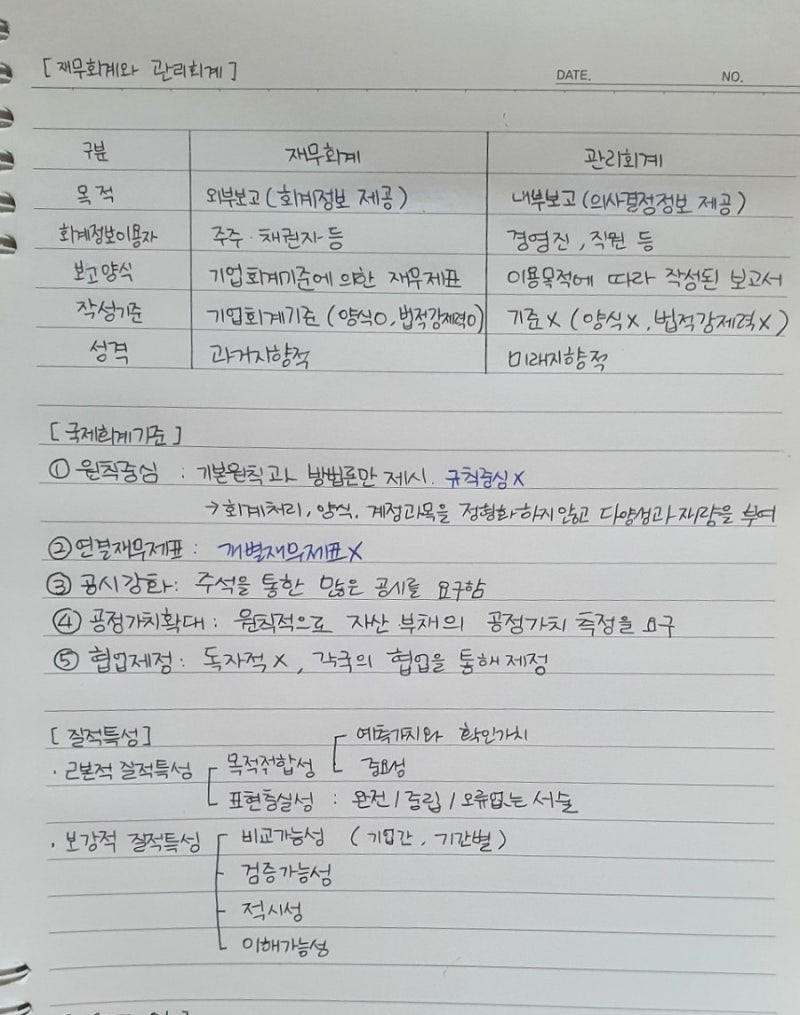 [ 재무회계와 관리회계 ]
DATE. NO.
구분 재무회계 관리회계
목적 외부보고 ( 회계정보 제공 ) 내부보고 ( 의사결정정보 제공 )
회계정보이용자 주주·채권자 등 경영진, 직원 등
보고양식 기업회계기준에 의한 재무제표 이용목적에 따라 작성된 보고서
작성기준 기업회계기준 ( 양식O, 법적강제력O) 기준X ( 양식X, 법적강제력X )
성격 과거지향적 미래지향적
[ 국제회계기준 ]
① 원칙중심 : 기본원칙과 방법론만 제시. 규칙중심X
→ 회계처리, 양식, 계정과목을 정형화하지않고 다양성과 재량을 부여
② 연결재무제표 : 개별재무제표X
③ 공시강화 : 주석을 통한 많은 공시를 요구함
④ 공정가치확대 : 원칙적으로 자산 부채의 공정가치 측정을 요구
⑤ 협업제정 : 독자적X, 각국의 협업을 통해 제정
[ 질적특성 ]
예측가치와 확인가치
· 근본적 질적특성 목적적합성 중요성
표현충실성 : 완전 / 중립 / 오류없는 서술
· 보강적 질적특성 비교가능성 ( 기업간, 기간별 )
검증가능성
적시성
이해가능성